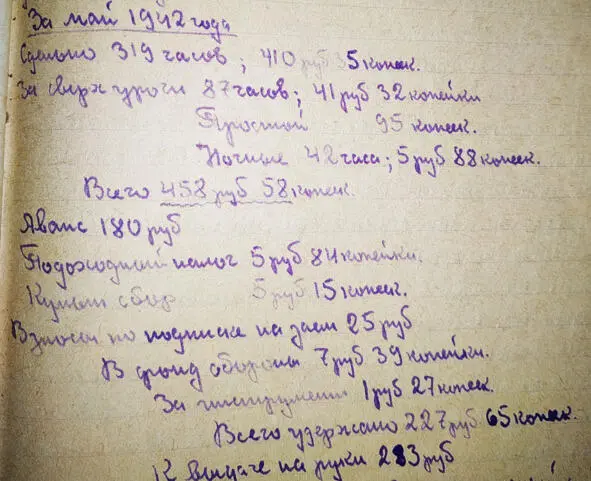 За май 1942 года
Сдельно 319 часов; 410 руб 35 копеек.
За сверхурочн 87 часов; 41 руб 32 копейки
Простой 95 копеек.
Ночные 42 часа; 5 руб 88 копеек.
Всего 458 руб 58 копеек.
Аванс 180 руб
Подоходный налог 5 руб 84 копейки.
Культ сбор 5 руб 15 копеек.
Взносы по подписке на заем 25 руб
В фонд обороны 7 руб 39 копейки.
За инструмент 1 руб 27 копеек.
Всего удержано 227 руб 65 копеек.
К выдаче на руки 283 руб